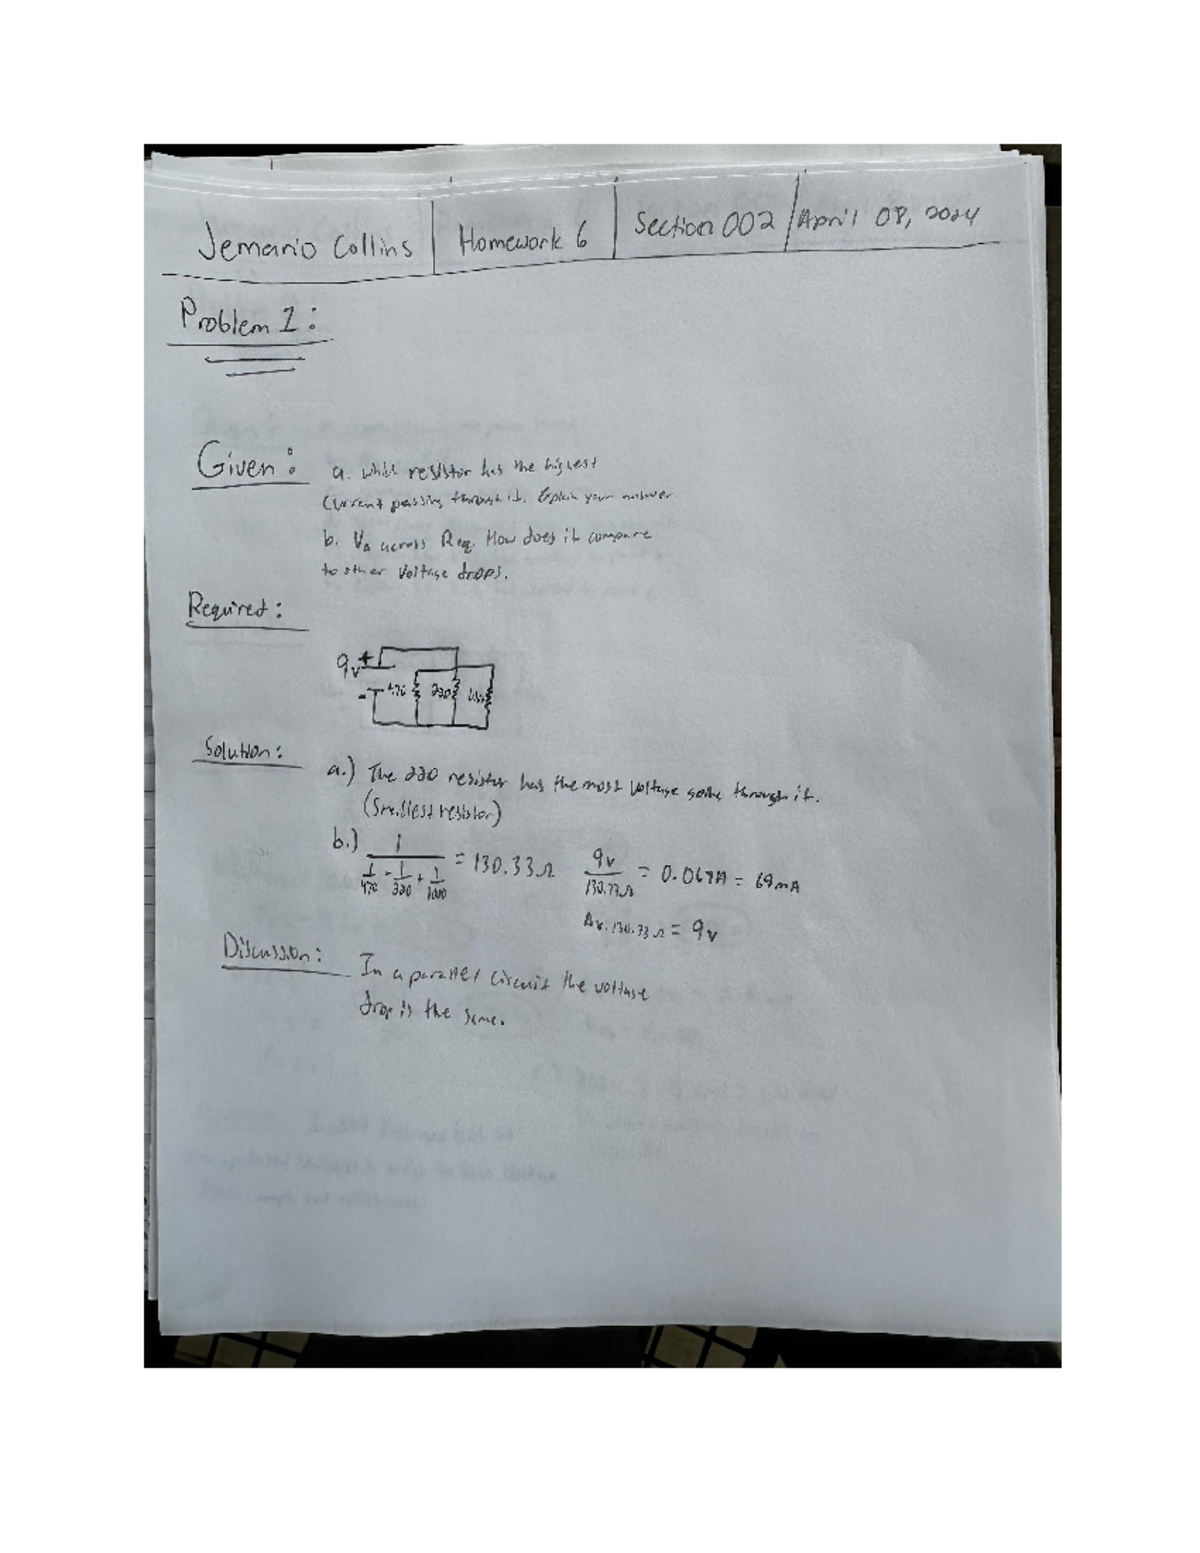 Jemario Collins | Homework 6 | Section 002 | April 08, 2024
Problem 1:
Given:
a. which resistor has the highest
current passing through it. Explain your answer
b. VΔ across Req. How does it compare
to other voltage drops.
Required:
9v + -
470 220
Solution:
a.) The 220 resistor has the most voltage going through it.
(Smallest resistor)
b.) 1 / (1/470 + 1/220 + 1/1000) = 130.33Ω
9v / 130.33Ω = 0.069A = 69mA
130.33Ω = 9v
Discussion:
In a parallel circuit the voltage
drop is the same.